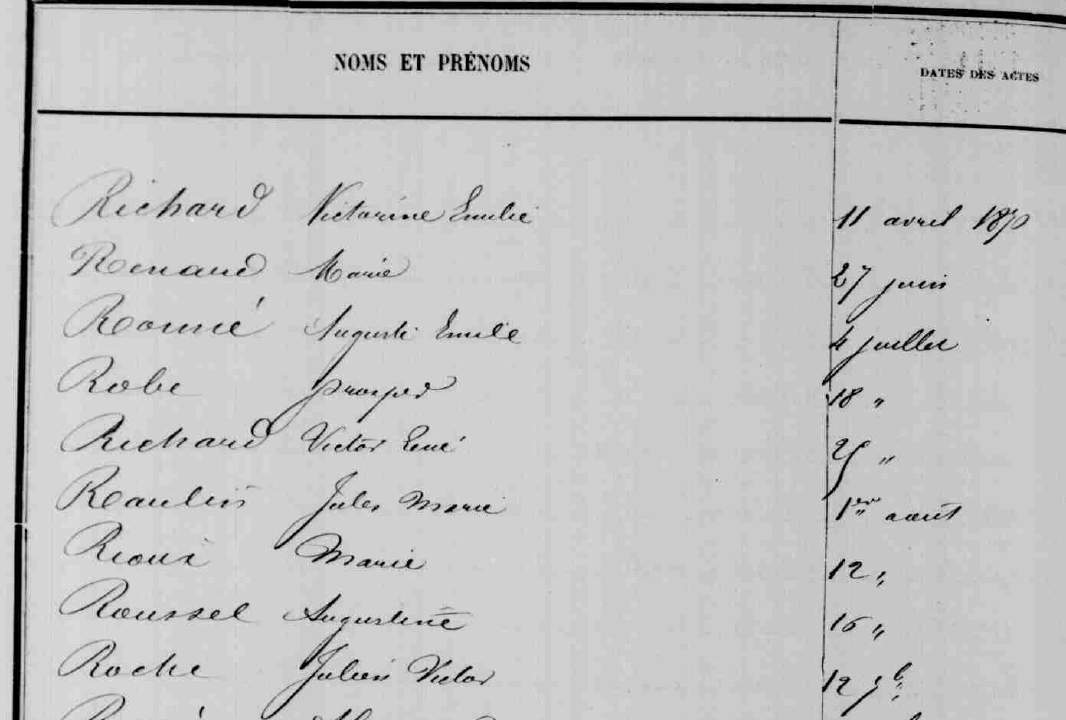 NOMS ET PRÉNOMS DATES DES ACTES
Richard Victorine Emilie 11 avril 1870
Renaud Marie 27 juin
Auguste Emile 4 juillet
Robe Prosper 18 "
Richard Victor René 25 "
Raulin Jules Marie 1er août
Rioux Marie 12 "
Roussel Augustine 16 "
Roche Julien Victor 12 7b